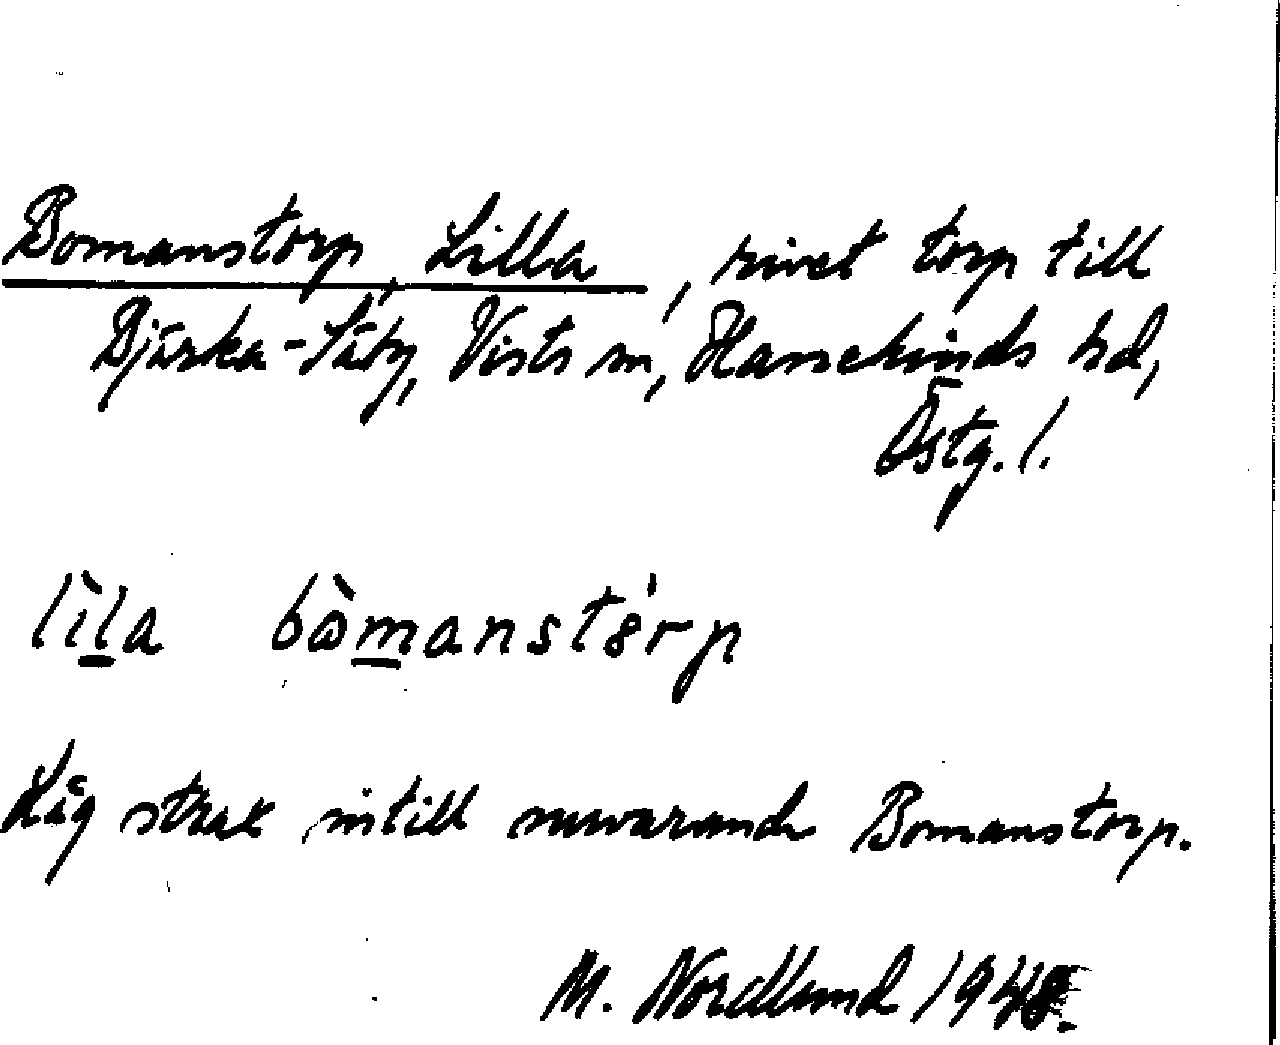 Bomanstorp, Lilla, rivet torp till
Bjärka-Säby, Vists sn, Hanekinds hd,
Östg. l.
lìla bòmanstórp
Låg strax intill nuvarande Bomanstorp.
M. Nordlund 1948.